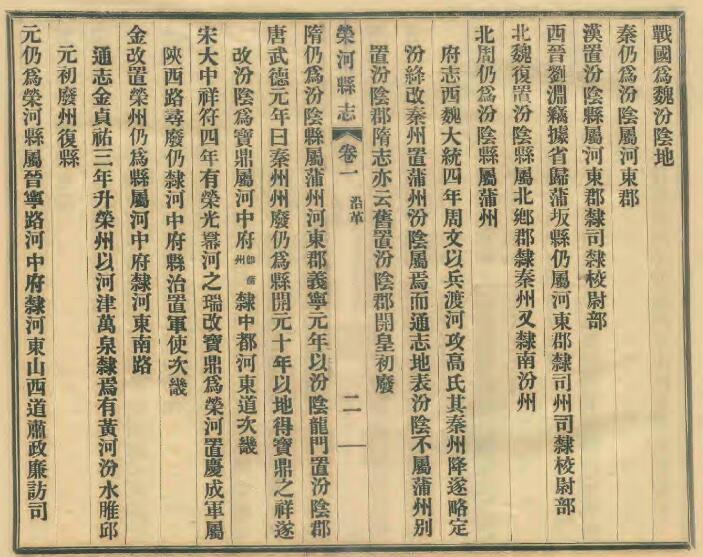 戰國爲魏汾陰地
秦仍爲汾陰屬河東郡
漢置汾陰縣屬河東郡隸司隸校尉部
西晉劉淵竊據省歸蒲坂縣仍屬河東郡隸司州司隸校尉部
北魏復置汾陰縣屬北鄉郡隸秦州又隸南汾州
北周仍爲汾陰縣屬蒲州
府志西魏大統四年周文以兵渡河攻高氏其秦州降遂略定
汾絳改秦州置蒲州汾陰屬焉而通志地表汾陰不屬蒲州别
置汾陰郡隋志亦云舊置汾陰郡開皇初廢
榮河縣志 卷一 沿革 二
隋仍爲汾陰縣屬蒲州河東郡義寧元年以汾陰龍門置汾陰郡
唐武德元年曰秦州州廢仍爲縣開元十年以地得寶鼎之祥遂
改汾陰爲寶鼎屬河中府卽蒲州隸中都河東道次畿
宋大中祥符四年有榮光羃河之瑞改寶鼎爲榮河置慶成軍屬
陝西路尋廢仍隸河中府縣治置軍使次畿
金改置榮州仍爲縣屬河中府隸河東南路
通志金貞祐三年升榮州以河津萬泉隸焉有黃河汾水脽邱
元初廢州復縣
元仍爲榮河縣屬晉寧路河中府隸河東山西道肅政廉訪司